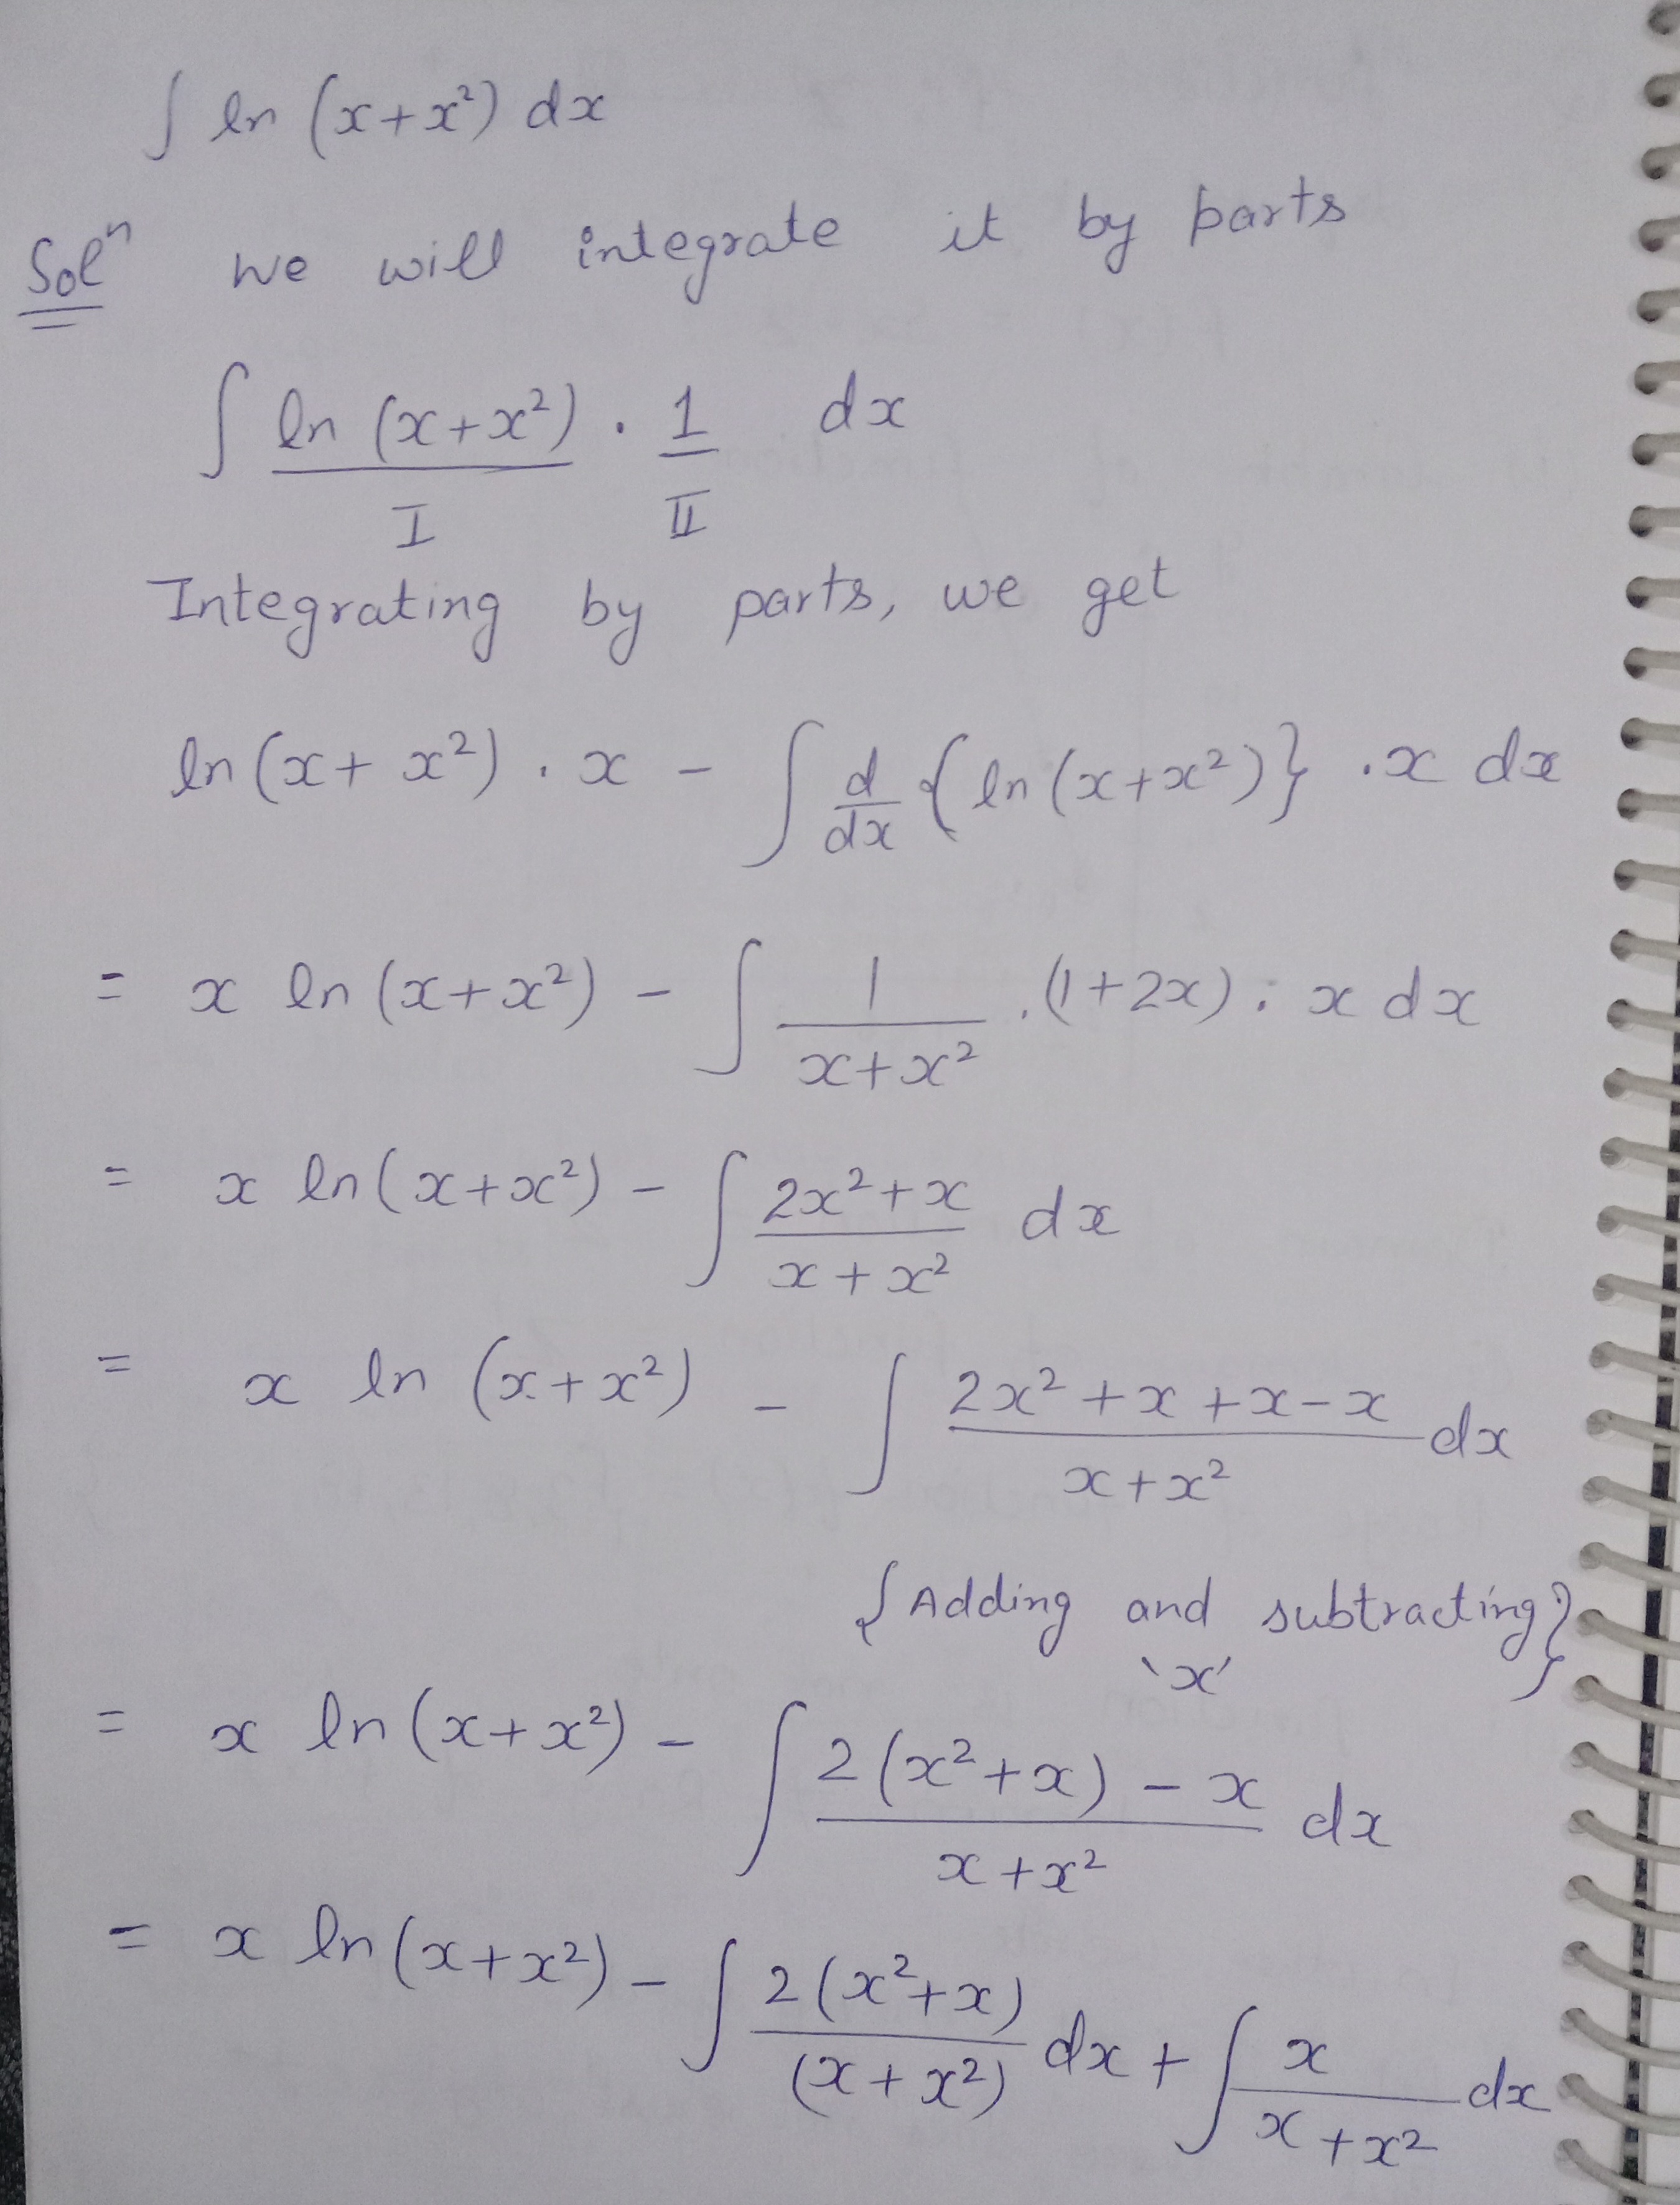 ∫ ln (x+x²) dx
Solⁿ we will integrate it by parts
∫ ln (x+x²) . 1 dx
I II
Integrating by parts, we get
ln (x+ x²) . x - ∫ d/dx { ln (x+x²)} .x dx
= x ln (x+x²) - ∫ 1/(x+x²) .(1+2x). x dx
= x ln (x+x²) - ∫ (2x²+x)/(x+x²) dx
= x ln (x+x²) - ∫ (2x²+x+x-x)/(x+x²) dx
{Adding and subtracting}
'x'
= x ln (x+x²) - ∫ (2(x²+x) - x)/(x+x²) dx
= x ln (x+x²) - ∫ 2(x²+x)/(x+x²) dx + ∫ x/(x+x²) dx